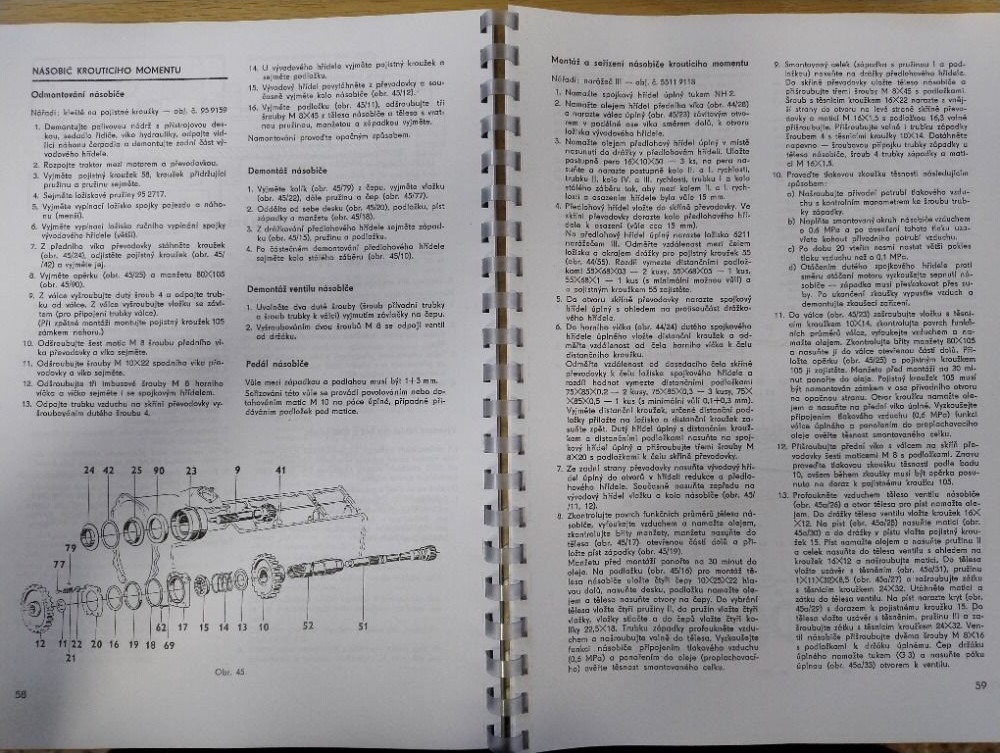 NÁSOBIČ KROUTICÍHO MOMENTU
Odmontování násobiče
Nářadí: kleště na pojistné kroužky — obj. č. 95 9159
1. Demontujte palivovou nádrž s přístrojovou des-
kou, sedadlo řidiče, víko hydrauliky, odpojte vid-
lici náhonu čerpadla a demontujte zadní část vý-
vodového hřídele.
2. Rozpojte traktor mezi motorem a převodovkou.
3. Vyjměte pojistný kroužek 58, kroužek přidržující
pružinu a pružinu sejměte.
4. Sejměte ložiskové pružiny 95 2717.
5. Vyjměte vypínací ložisko spojky pojezdu a náho-
nu (menší).
6. Vyjměte vypínací ložisko ručního vypínání spojky
vývodového hřídele (větší).
7. Z předního víka převodovky stáhněte kroužek
(obr. 45/24), odjistěte pojistný kroužek (obr. 45/
/42) a vyjměte jej.
8. Vyjměte opěrku (obr. 45/25) a manžetu 80X105
(obr. 45/90).
9. Z válce vyšroubujte dutý šroub 4 a odpojte trub-
ku od válce. Z válce vyšroubujte vložku se závi-
tem (pro připojení trubky válce).
(Při zpětné montáži montujte pojistný kroužek 105
zámkem nahoru.)
10. Odšroubujte šest matic M 8 šroubu předního ví-
ka převodovky a víko sejměte.
11. Odšroubujte šrouby M 10X22 spodního víka pře-
vodovky a víko sejměte.
12. Odšroubujte tři imbusové šrouby M 8 horního
víčka a víčko sejměte i se spojkovým hřídelem.
13. Odpojte trubku vzduchu na skříni převodovky vy-
šroubováním dutého šroubu 4.
14. U vývodového hřídele vyjměte pojistný kroužek a
sejměte podložku.
15. Vývodový hřídel povytáhněte z převodovky a sou-
časně vyjměte kolo násobiče (obr. 45/12).
16. Vyjměte podložku (obr. 45/11), odšroubujte tři
šrouby M 8X45 z tělesa násobiče a těleso s vrat-
nou pružinou, manžetou a západkou vyjměte.
Namontování proveďte opačným způsobem.
Demontáž násobiče
1. Vyjměte kolík (obr. 45/79) z čepu, vyjměte vložku
(obr. 45/22), dále pružinu a čep (obr. 45/77).
2. Oddělte od sebe desku (obr. 45/20), podložku, píst
západky a manžetu (obr. 45/18).
3. Z drážkování předlohového hřídele sejměte západ-
ku (obr. 45/15), pružinu a podložku.
4. Po částečném demontování předlohového hřídele
sejměte kolo stálého záběru (obr. 45/10).
Demontáž ventilu násobiče
1. Uvolněte dva duté šrouby (šroub přívodní trubky
a šroub trubky k válci) vyjmutím závlačky na čepu.
2. Vyšroubováním dvou šroubů M 8 se odpojí ventil
od držáku.
Pedál násobiče
Vůle mezi západkou a podlahou musí být 1÷3 mm.
Seřizování této vůle se provádí povolováním nebo do-
tahováním matic M 10 na páce úplné, případně při-
dáváním podložek pod matice.
24 42 25 90 23 9 41
79
77
12 11 22 20 16 19 18 62 17 15 14 13 10 52 51
21 69
Obr. 45
58
Montáž a seřízení násobiče krouticího momentu
Nářadí: narážeč III — obj. č. 5511 9118
1. Namažte spojkový hřídel úplný tukem NH 2.
2. Namažte olejem hřídel předního víka (obr. 44/28)
a narazte válec úplný (obr. 45/23) závitovým otvo-
rem v podélné ose víka směrem dolů, k otvoru
ložiska vývodového hřídele.
3. Namažte olejem předlohový hřídel úplný v místě
nasunutí do drážky v předlohovém hřídeli. Uložte
postupně pero 16X10X50 — 3 ks, na pera na-
suňte a narazte postupně kolo II. a I. rychlosti,
trubku II, kolo IV. a III. rychlosti, trubku I a kolo
stálého záběru tak, aby mezi kolem II. a I. rych-
losti a osazením hřídele byla vůle 15 mm.
4. Předlohový hřídel vložte do skříně převodovky. Ve
skříni převodovky dorazte kolo předlohového hří-
dele k osazení (vůle cca 15 mm).
Na předlohový hřídel úplný narazte ložisko 6211
narážečem III. Odměřte vzdálenost mezi čelem
ložiska a okrajem drážky pro pojistný kroužek 55
(obr. 44/55). Rozdíl vymezte distančními podlož-
kami 55X68X03 — 2 kusy, 55X68X05 — 1 kus,
55X68X1 — 1 kus (s minimální možnou vůlí) a
s pojistným kroužkem 55 zajistěte.
5. Do otvoru skříně převodovky narazte spojkový
hřídel úplný s ohledem na protisoučást drážko-
vého hřídele.
6. Do horního víčka (obr. 44/24) dutého spojkového
hřídele úplného vložte distanční kroužek a od-
měřte vzdálenost od čela horního víčka k čelu
distančního kroužku.
Odměřte vzdálenost od dosedacího čela skříně
převodovky k čelu ložiska spojkového hřídele a
rozdíl hodnot vymezte distančními podložkami
75X85X0,2 — 2 kusy, 75X85X0,5 — 3 kusy, 75X
X85X0,5 — 1 kus (s minimální vůlí 0,1÷0,3 mm).
Vyjměte distanční kroužek, určené distanční pod-
ložky přiložte na ložisko a distanční kroužek za-
suňte zpět. Dutý hřídel úplný s distančním krouž-
kem a distančními podložkami nasuňte na spoj-
kový hřídel úplný a přišroubujte třemi šrouby M
8X20 s podložkami k čelu skříně převodovky.
7. Ze zadní strany převodovky nasuňte vývodový hří-
del úplný do otvorů v hřídeli redukce a předlo-
hového hřídele. Současně nasuňte zepředu na
vývodový hřídel vložku a kolo násobiče (obr. 45/
/11, 12).
8. Zkontrolujte povrch funkčních průměrů tělesa ná-
sobiče, vyfoukejte vzduchem a namažte olejem,
zkontrolujte břity manžety, manžetu nasuňte do
tělesa (obr. 45/17) otevřenou částí dolů a při-
ložte píst západky (obr. 45/19).
Manžetu před montáží ponořte na 30 minut do
oleje. Na podložku (obr. 45/16) pro montáž tě-
lesa násobiče vložte čtyři čepy 10X25X22 hla-
vou dolů, nasuňte desku, podložku namažte ole-
jem a těleso nasuňte otvory na čepy. Do vybrání
tělesa vložte čtyři pružiny II, do pružin vložte čtyři
vložky, vložky stlačte a do čepů vložte čtyři ko-
líky 22,5X18. Trubku západky profoukněte vzdu-
chem a našroubujte volně do tělesa. Vyzkoušejte
funkci násobiče připojením tlakového vzduchu
(0,6 MPa) a ponořením do oleje (proplachovací-
ho) ověřte těsnost smontovaného celku.
9. Smontovaný celek (západka s pružinou I a pod-
ložkou) nasuňte na drážky předlohového hřídele.
Do skříně převodovky uložte těleso násobiče a
přišroubujte třemi šrouby M 8X45 s podložkami.
Šroub s těsnicím kroužkem 16X22 narazte z vněj-
ší strany do otvoru na levé straně skříně převo-
dovky a maticí M 16X1,5 s podložkou 16,3 volně
přišroubujte. Přišroubujte volně i trubku západky
šroubem 4 s těsnicími kroužky 10X14. Dotáhněte
napevno — šroubovou přípojku trubky západky u
tělesa násobiče, šroub 4 trubky západky a mati-
ci M 16X1,5.
10. Proveďte tlakovou zkoušku těsnosti následujícím
způsobem:
a) Našroubujte přívodní potrubí tlakového vzdu-
chu s kontrolním manometrem ke šroubu trub-
ky západky.
b) Naplňte smontovaný okruh násobiče vzduchem
o 0,6 MPa a po dosažení tohoto tlaku uza-
vřete kohout přívodního potrubí vzduchu.
c) Po dobu 20 vteřin nesmí nastat větší pokles
tlaku vzduchu než o 0,1 MPa.
d) Otáčením dutého spojkového hřídele proti
směru otáčení motoru vyzkoušejte sepnutí ná-
sobiče — západka musí přeskakovat přes zu-
by. Po ukončení zkoušky vypusťte vzduch a
demontujte zkoušecí zařízení.
11. Do válce (obr. 45/23) zašroubujte vložku s těsni-
cím kroužkem 10X14, zkontrolujte povrch funkč-
ních průměrů válce, vyfoukejte vzduchem a na-
mažte olejem. Zkontrolujte břity manžety 80X105
a nasuňte ji do válce otevřenou částí dolů. Při-
ložte opěrku (obr. 45/25) a pojistným kroužkem
105 ji zajistěte. Manžetu před montáží na 30 mi-
nut ponořte do oleje. Pojistný kroužek 105 musí
být namontován zámkem v ose přívodního otvoru
na opačnou stranu. Otvor kroužku namažte ole-
jem a nasuňte na přední víko úplné. Vyzkoušejte
připojením tlakového vzduchu (0,6 MPa) funkci
válce úplného a ponořením do proplachovacího
oleje ověřte těsnost smontovaného celku.
12. Přišroubujte přední víko s válcem na skříň pře-
vodovky šesti maticemi M 8 s podložkami. Znovu
proveďte tlakovou zkoušku těsnosti podle bodu
10, ovšem během zkoušky musí být opěrka posu-
nuta na doraz k pojistnému kroužku 105.
13. Profoukněte vzduchem těleso ventilu násobiče
(obr. 45a/26) a otvor tělesa pro píst namažte ole-
jem. Do drážky tělesa ventilu vložte kroužek 16X
X12. Na píst (obr. 45a/28) nasuňte matici (obr.
45a/30) a do drážky v pístu vložte pojistný krou-
žek 15. Píst namažte olejem a nasuňte pružinu II
a celek nasuňte do tělesa ventilu s ohledem na
kroužek 16X12 a našroubujte matici. Do tělesa
vložte uzávěr s těsněním (obr. 45a/31), pružinu
1X11X32X8,5 (obr. 45a/27) a zašroubujte zátku
s těsnicím kroužkem 24X32. Utáhněte matici a
zátku do tělesa ventilu. Na píst narazte kryt (obr.
45a/29) s dorazem k pojistnému kroužku 15. Do
tělesa vložte uzávěr s těsněním, pružinu II a za-
šroubujte zátku s těsnicím kroužkem 24X32. Ven-
til násobiče přišroubujte dvěma šrouby M 8X16
s podložkami k držáku úplnému. Čep držáku
úplného namažte tukem (G 3) a nasuňte páku
úplnou (obr. 45a/35) otvorem k ventilu.
59